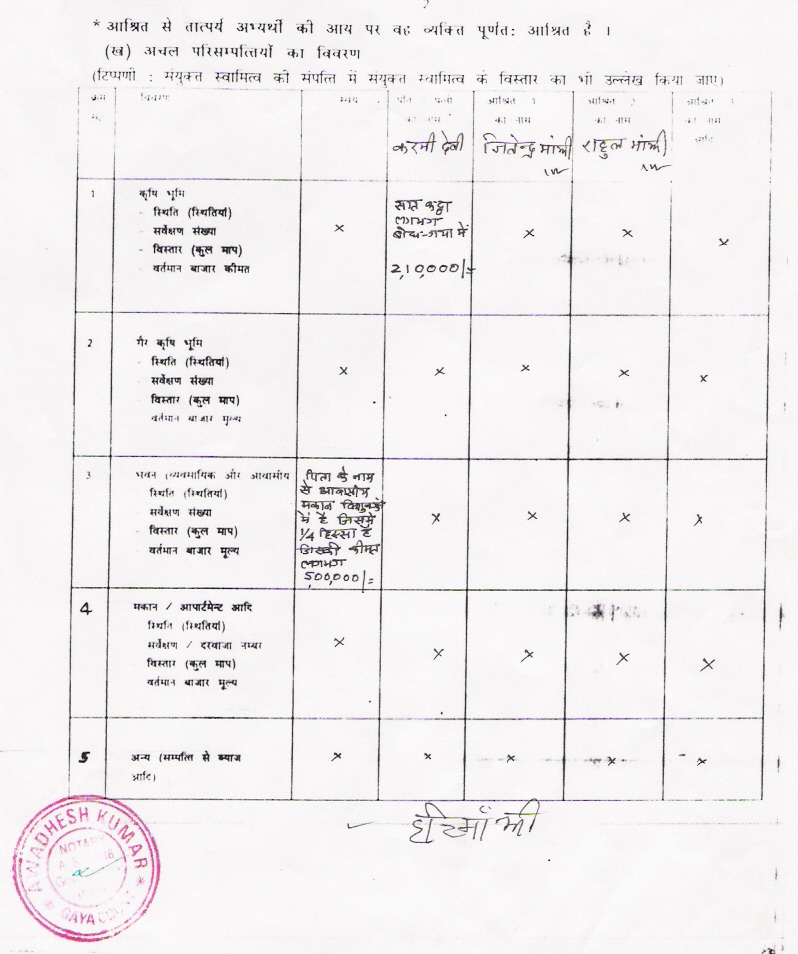 2
* आश्रित से तात्पर्य अभ्यर्थी की आय पर वह व्यक्ति पूर्णतः आश्रित है ।
(ख) अचल परिसम्पत्तियों का विवरण
(टिप्पणी : संयुक्त स्वामित्व की संपत्ति में संयुक्त स्वामित्व के विस्तार का भी उल्लेख किया जाए)
क्रम सं. विवरण स्वयं पति पत्नी का नाम आश्रित 1 का नाम आश्रित 2 का नाम आश्रित 3 का नाम आदि
करमी देवी जितेन्द्र मांझी राहुल मांझी
1 कृषि भूमि
- स्थिति (स्थितियां)
- सर्वेक्षण संख्या
- विस्तार (कुल माप)
- वर्तमान बाजार कीमत
×
सात कट्ठा
लगभग
बोध-गया में
2,10,000/=
× × ×
2 गैर कृषि भूमि
- स्थिति (स्थितियां)
सर्वेक्षण संख्या
विस्तार (कुल माप)
वर्तमान बाजार मूल्य
× × × × ×
3 भवन (व्यवसायिक और आवासीय
स्थिति (स्थितियां)
सर्वेक्षण संख्या
- विस्तार (कुल माप)
- वर्तमान बाजार मूल्य
पिता के नाम
से
मकान
में है जिसमें
1/4 हिस्सा है
जिसकी कीमत
लगभग
5,00,000/=
× × × ×
4 मकान / आपार्टमेन्ट आदि
स्थिति (स्थितियां)
सर्वेक्षण / दरवाजा नम्बर
विस्तार (कुल माप)
वर्तमान बाजार मूल्य
× × × × ×
5 अन्य (सम्पत्ति से ब्याज
आदि)
× × × × ×
AWADHESH KUMAR
NOTARY
GAYA